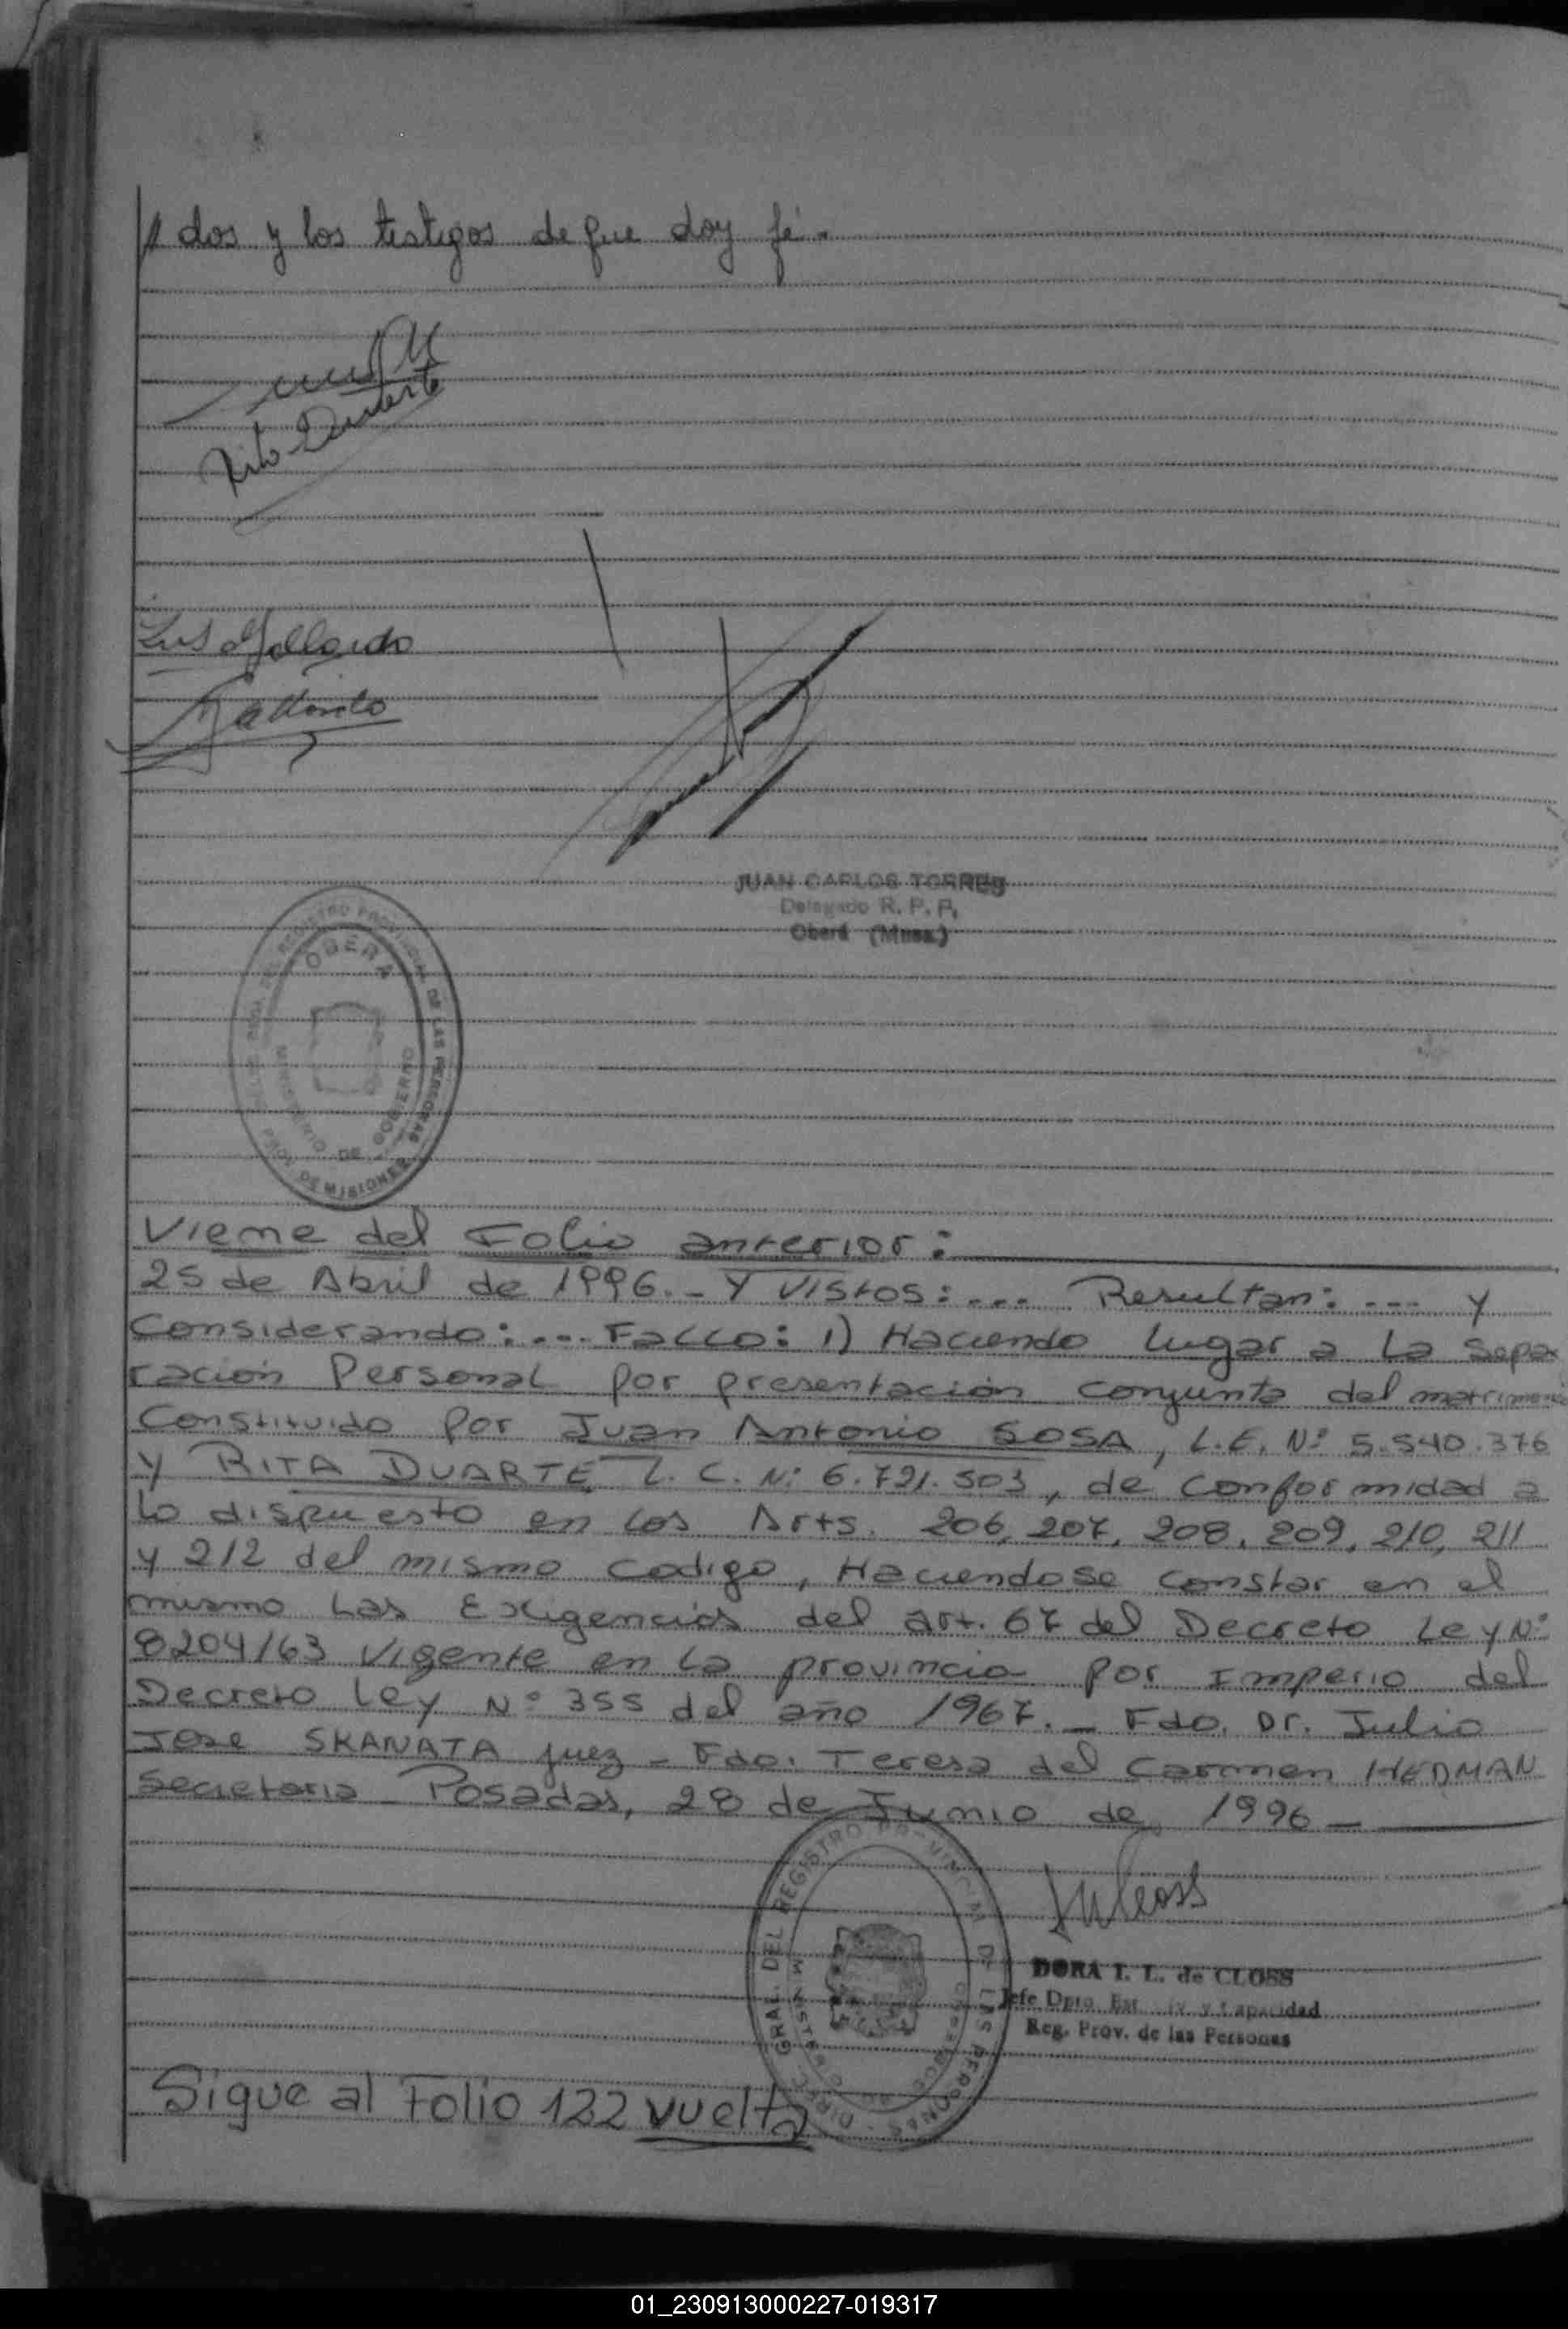 dos y los testigos de que doy fé.-
Rita Duarte
Luis Gallardo
JUAN CARLOS TORRES
Delegado R. P. P.
Oberá (Mnes.)
DEL REGISTRO PROVINCIAL DE LAS PERSONAS
OBERA
MINISTERIO DE GOBIERNO
PROV. DE MISIONES
Viene del Folio anterior:
25 de Abril de 1996.- Y VISTOS: ... Resultan: ... y
Considerando: ... FALLO: 1) Haciendo lugar a la Sepa
ración Personal por presentación conjunta del matrimonio
Constituido por Juan Antonio SOSA, L.E. Nº 5.540.376
y RITA DUARTE L.C. Nº 6.721.503, de conformidad a
lo dispuesto en los Arts. 206, 207, 208, 209, 210, 211
y 212 del mismo Codigo, Haciendose constar en el
mismo las Exigencias del art. 67 del Decreto Ley Nº
8204/63 Vigente en la provincia por Imperio del
Decreto Ley Nº 355 del año 1967.- Fdo. Dr. Julio
Jose SKANATA juez - Fdo. Teresa del Carmen HEDMAN
Secretaria - Posadas, 28 de Junio de 1996 -
GRAL. DEL REGISTRO PROVINCIAL DE LAS PERSONAS
DORA I. L. de CLOSS
Jefe Dpto. Est. Civ. y Capacidad
Reg. Prov. de las Personas
Sigue al Folio 122 vuelta
01_230913000227-019317